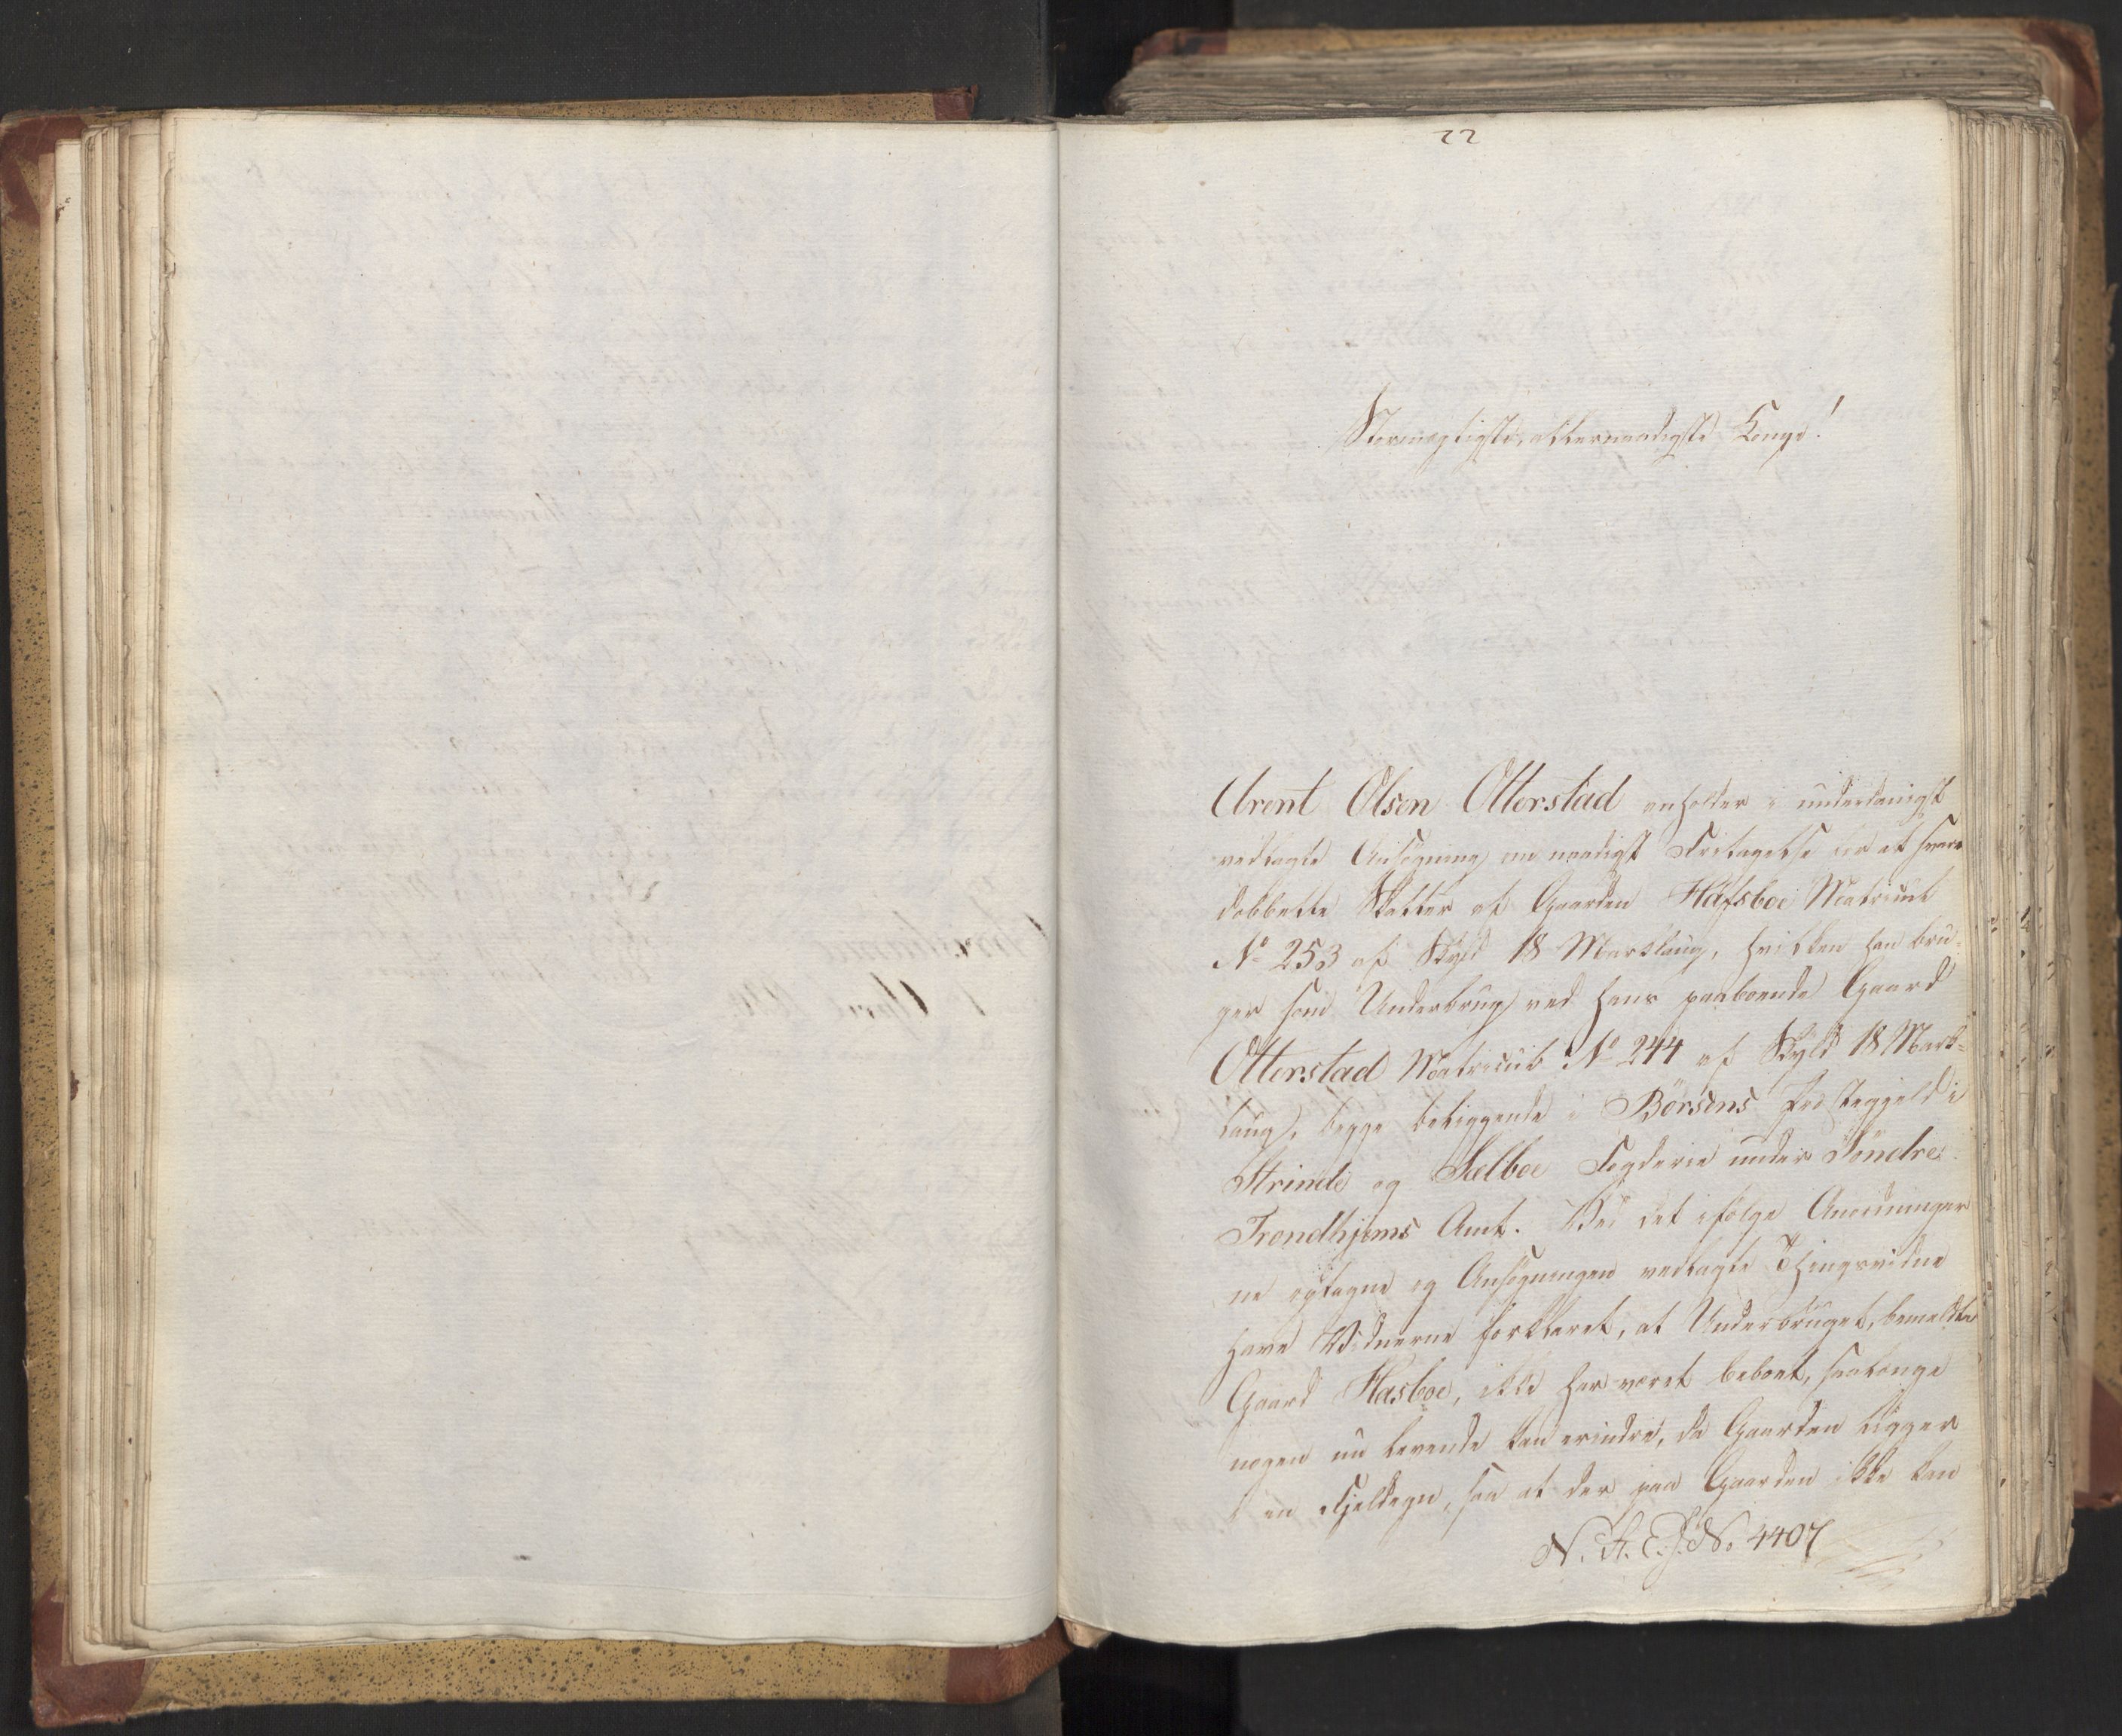 22
Stormægtigste, allernaadigste Konge!
Arent Olsen Otterstad anholder i underdanigst
vedlagte Ansøgning om naadigst Fritagelse for at svare
dobbelte Skatter af Gaarden Hafsboe Matricul
No 253 af Skyld 18 Marklaug, hvilken han bru-
ger som Underbrug ved hans paaboende Gaard
Otterstad Matricul No 244 af Skyld 18 Mark-
laug, begge beliggende i Børsens Præstegjeld i
Strinde og Sælboe Fogderie under Søndre
Trondhjems Amt. Ved det ifølge Anordninger
ne optagne og Ansøgningen vedlagte Thingsvidne
have Vidnerne forklaret, at Underbruget, bemeldte
Gaard Hasboe, ikke har været beboet, saalænge
nogen nu levende kan erindre, da Gaarden ligger
i en Fjeldegn, saa at der paa Gaarden ikke kan
N. A. C. J. No. 4407